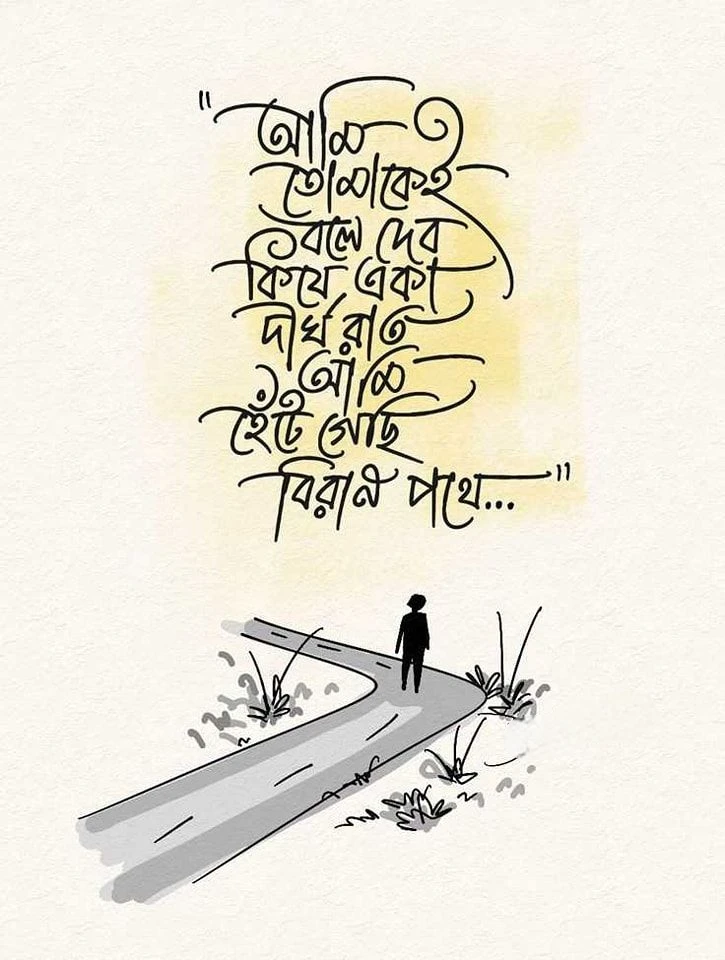 "আমি
তোমাকেই
বলে দেব
কিযে একা
দীর্ঘ রাত
আমি
হেঁটে গেছি
বিরান পথে..."